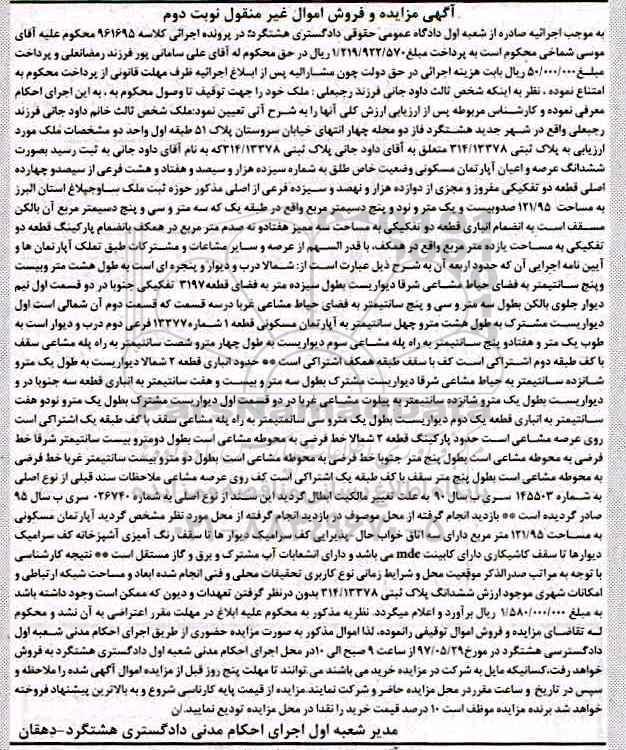 آگهی مزایده و فروش اموال غیر منقول نوبت دوم
به موجب اجرائیه صادره از شعبه اول دادگاه عمومی حقوقی دادگستری هشتگرد در پرونده اجرائی کلاسه ۹۶۱۶۹۵ محکوم علیه آقای
موسی شماخی محکوم است به پرداخت مبلغ۱/۲۱۹/۹۲۲/۵۷۰ ریال در حق محکوم له آقای علی سامانی پور فرزند رمضانعلی و پرداخت
مبلغ۵۰/۰۰۰/۰۰۰ ریال بابت هزینه اجرائی در حق دولت چون مشارالیه پس از ابلاغ اجرائیه ظرف مهلت قانونی از پرداخت محکوم به
امتناع نموده ، نظر به اینکه شخص ثالث داود جانی فرزند رجبعلی : ملک خود را جهت توقیف تا وصول محکوم به ، به این اجرای احکام
معرفی نموده و کارشناس مربوطه پس از ارزیابی ارزش کلی آنها را به شرح آتی تعیین نمود:ملک شخص ثالث خانم داود جانی فرزند
رجبعلی واقع در شهر جدید هشتگرد فاز دو محله چهار انتهای خیابان سروستان پلاک ۵۱ طبقه اول واحد دو مشخصات ملک مورد
ارزیابی به پلاک ثبتی ۳۱۴/۱۳۳۷۸ متعلق به آقای داود جانی پلاک ثبتی ۳۱۴/۱۳۳۷۸که به نام آقای داود جانی به ثبت رسید بصورت
ششدانگ عرصه و اعیان آپارتمان مسکونی وضعیت خاص طلق به شماره سیزده هزار و سیصد و هفتاد و هشت فرعی از سیصدو چهارده
اصلی قطعه دو تفکیکی مفروز و مجزی از دوازده هزار و نهصد و سیزده فرعی از اصلی مذکور حوزه ثبت ملک ساوجبلاغ استان البرز
به مساحت ۱۲۱/۹۵ صدوبیست و یک متر و نود و پنج دسیمتر مربع واقع در طبقه یک که سه متر و سی و پنج دسیمتر مربع آن بالکن
مسقف است به انضمام انباری قطعه دو تفکیکی به مساحت سه ممیز هفتادو نه صدم متر مربع در همکف بانضمام پارکینگ قطعه دو
تفکیکی به مساحت یازده متر مربع واقع در همکف، با قدر السهم از عرصه و سایر مشاعات و مشترکات طبق تملک آپارتمان ها و
آیین نامه اجرایی آن که حدود اربعه آن به شرح ذیل عبارت است از: شمالا درب و دیوار و پنجره ای است به طول هشت متر وبیست
و پنج سانتیمتر به فضای حیاط مشاعی شرقا دیواریست بطول سیزده متر به فضای قطعه۳۱۹۷ تفکیکی جنوبا در دو قسمت اول نیم
دیوار جلوی بالکن بطول سه متر و سی و پنج سانتیمتر به فضای حیاط مشاعی غربا درسه قسمت که قسمت دوم آن شمالی است اول
دیواریست مشترک به طول هشت مترو چهل سانتیمتر به آپارتمان مسکونی قطعه ۱ شماره۱۳۳۷۷ فرعی دوم درب و دیوار است به
طوب یک متر و هفتادو پنج سانتیمتر به راه پله مشاعی سوم دیواریست به طول چهار مترو شصت سانتیمتر به راه پله مشاعی سقف
با کف طبقه دوم اشتراکی است کف با سقف طبقه همکف اشتراکی است ** حدود انباری قطعه ۲ شمالا دیواریست به طول یک مترو
شانزده سانتیمتر به حیاط مشاعی شرقا دیواریست مشترک بطول سه متر و بیست و هفت سانتیمتر به انباری قطعه سه جنوبا در و
دیواریست بطول یک مترو شانزده سانتیمتر به پیلوت مشاعی غربا در دو قسمت اول دیواریست مشترک بطول یک مترو نودو هفت
سانتیمتر به انباری قطعه یک دوم دیواریست بطول یک مترو سی سانتیمتر به راه پله مشاعی سقف با کف طبقه یک اشتراکی است
روی عرصه مشاعی است حدود پارکینگ قطعه ۲ شمالا خط فرضی به محوطه مشاعی است بطول دومترو بیست سانتیمتر شرقا خط
فرضی به محوطه مشاعی است بطول پنج متر جنوبا خط فرضی به محوطه مشاعی است بطول دو مترو بیست سانتیمتر غربا خط فرضی
به محوطه مشاعی است بطول پنج متر سقف با کف طبقه یک اشتراکی است کف روی عرصه مشاعی ملاحظات سند قبلی از نوع اصلی
به شماره ۱۴۵۵۰۳ سری ب سال ۹۰ به علت تغییر مالکیت ابطال گردید این سند از نوع اصلی به شماره ۰۲۶۷۴۰ سری ب سال ۹۵
صادر گردیده است ** بازدید انجام گرفته از محل موصوف در بازدید انجام گرفته از محل مورد نظر مشخص گردید آپارتمان مسکونی
به مساحت ۱۲۱/۹۵ متر مربع دارای ۲ اتاق خواب حال -پذیرایی کف سرامیک دیوار ها تا سقف رنگ آمیزی آشپزخانه کف سرامیک
دیوارها تا سقف کاشیکاری دارای کابینت mdc می باشد و دارای انشعابات آب مشترک و برق و گاز مستقل است ** نتیجه کارشناسی
با توجه به مراتب صدرالذکر موقعیت محل و شرایط زمانی نوع کاربری تحقیقات محلی و فنی انجام شده ابعاد و مساحت شبکه ارتباطی و
امکانات شهری موجود ارزش ششدانگ پلاک ثبتی ۳۱۴/۱۳۳۷۸ بدون درنظر گرفتن تعهدات و دیون که ممکن است وجود داشته باشد
به مبلغ ۱/۵۸۰/۰۰۰/۰۰۰ ریال برآورد و اعلام میگردد. نظریه مذکور به محکوم علیه ابلاغ در مهلت مقرر اعتراضی به آن نشد و محکوم
له تقاضای مزایده و فروش اموال توقیفی رانموده، لذا اموال مذکور به صورت مزایده حضوری از طریق اجرای احکام مدنی شعبه اول
دادگسترسی هشتگرد در مورخ۹۷/۰۵/۲۹ از ساعت ۹ صبح الی ۱۰در محل اجرای احکام مدنی شعبه اول دادگستری هشتگرد به فروش
خواهد رفت،کسانیکه مایل به شرکت در مزایده خرید می باشند می توانند تا مهلت پنج روز قبل از مزایده اموال آگهی شده را ملاحظه و
سپس در تاریخ و ساعت مقرردر محل مزایده حاضر و شرکت نمایند.مزایده از قیمت پایه کارناسی شروع و به بالاترین پیشنهاد فروخته
خواهد شد برنده مزایده موظف است ۱۰ درصد قیمت خرید را نقدا در محل مزایده تودیع نمایید.ان
مدیر شعبه اول اجرای احکام مدنی دادگستری هشتگرد-دهقان